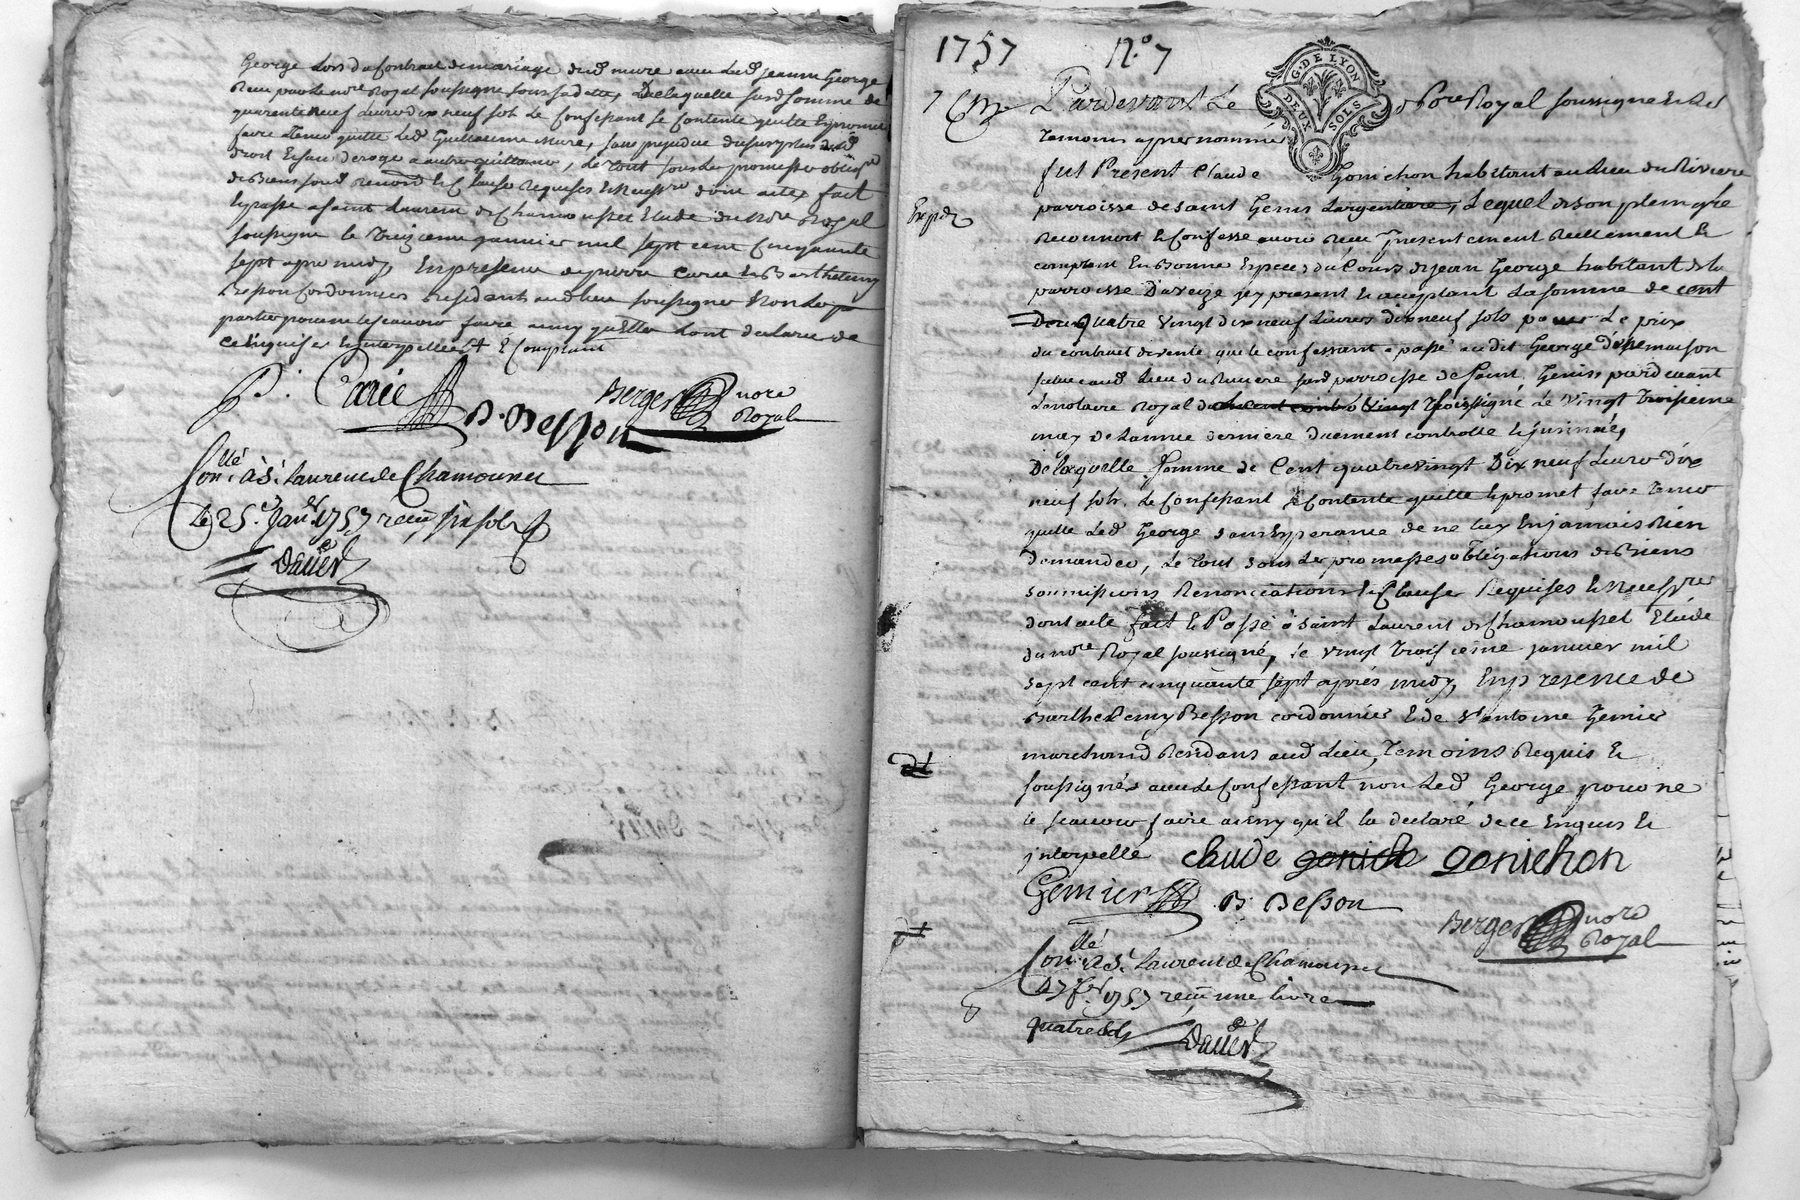 George Lors du Contract de mariage dud mure avec Lad jeanne George
Receu par Le nore Royal soussigné sous sa datte, De laquelle susd somme de
quarente neuf Livres dix neuf sols Le Confessant se Contente quitte Et promet
faire Tenir quitte Led Guillaume Mure, sans prejudice du surplus de sd
droit Et sans deroger a autre quittance, Le Tout sous Les promesses oblig
de Biens soud Renond Et Clauses Requises Et Necessre dont acte fait
Et passé a saint Laurent de Chamousset Etude du Nore Royal
soussigné le Treizieme janvier mil sept cent Cinquante
sept apres midy, En presence de pierre Carie Et Barthelemy
Besson Cordonniers Residents aud lieu soussignes Non Les
parties pour ne le scavoir faire ainsy qu'Elles L'ont declaré de
ce Enquises Et interpellées + Et Comptant
P. Carie
B. Besson
Berger nore
Royal
Conllé à St Laurent de Chamousset
Le 25e Janer 1757 reçu six sols
Dauer
1757 N.o 7
G. DE LYON
DEUX SOLS
7 Pardevant Le Nore Royal soussigné Et Les
Temoins apres nommés
fut Present Claude Gonichon habitant au Lieu du Riviere
parroisse de saint Genis Largentiere, Lequel de son plein gré
Reconnoit Et Confesse avoir Receu presentement Réellement Et
Expedr
comptant En Bonne Especes du Cours de jean George habitant de la
parroisse Daveize jcy present Et acceptant La somme de cent
Deux quatre vingt dix neuf Livres dix neuf sols pour Le prix
du contract de vente que le confessant a passé audit George dune maison
scitue aud Lieu du Riviere susd parroisse de saint Genis pardevant
Le notaire Royal soussigné Le Vingt Troisieme
may de Lannée derniere duement controllé Et insinué,
De laquelle somme de Cent quatre vingt Dix neuf Livres dix
neuf sols, Le Confessant se Contente quitte Et promet faire Tenir
quitte Led George sans Esperance de ne luy En jamais Rien
demander, Le Tout sous Les promesses obligations de Biens
soumissions Renonciations Et Clauses Requises Et Necessre
dont acte fait Et Passé à saint Laurent de Chamousset Etude
du nore Royal soussigné, le vingt Troisieme janvier mil
sept cent cinquante sept après midy, En presence de
Barthelemy Besson cordonnier Et de sr antoine Gemier
marchand Residans aud Lieu, Temoins Requis Et
soussignés avec Le Confessant non Led George pour ne
le scavoir faire ainsy qu'il la declaré de ce Enquis Et
interpellé claude gonich gonichon
Gemier B. Besson
Berger nore
Royal
Conllé à St Laurent de Chamousset
Le 7 fer 1757 reçu une livre
quatre sols
Dauer